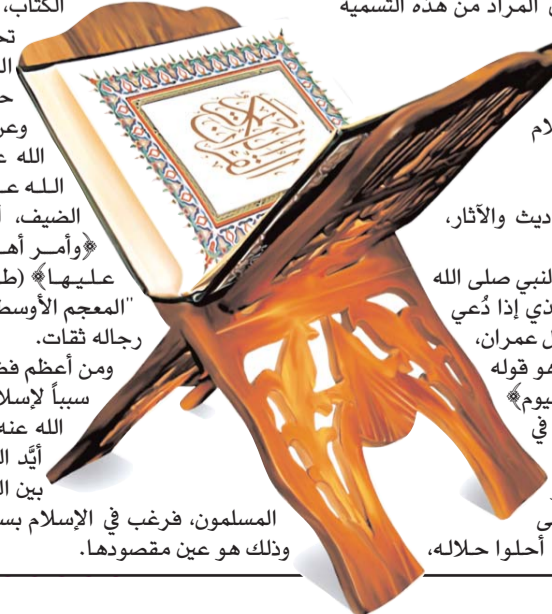 المراد من هذه التسمية
لام
ديث والآثار،
لنبي صلى الله
ذي إذا دُعي
ل عمران،
هو قوله
يوم﴾
في
ى
أحلوا حلاله،
القرآن الكريم
الكتاب،
تح
ال
ح
وعر
الله ع
الله ع
الضيف، أ
﴿وأمر أه
عليها﴾ (ط
"المعجم الأوسط
رجاله ثقات.
ومن أعظم فض
سبباً لإسلا
الله عنه
أيَّد ال
بين ال
المسلمون، فرغب في الإسلام بس
وذلك هو عين مقصودها.